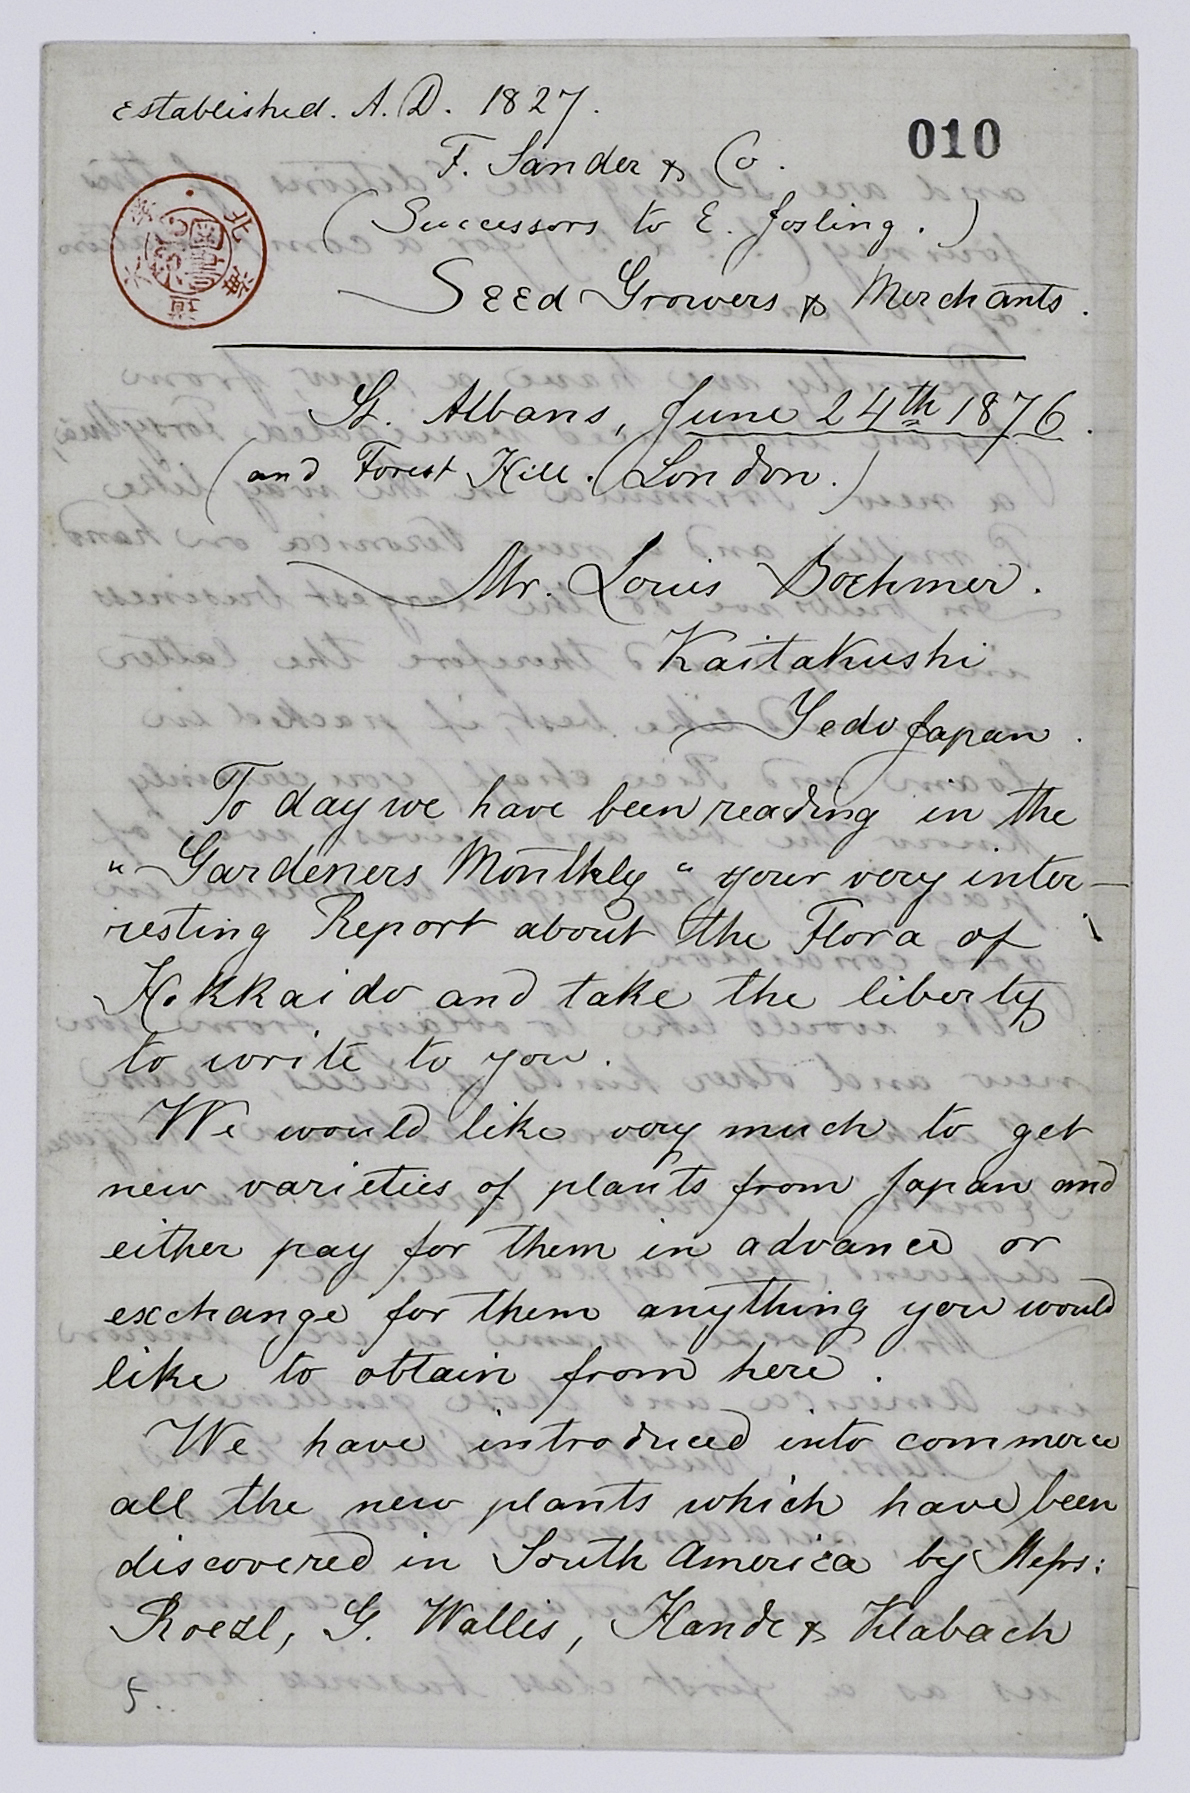 Established. A. D. 1827.
010
F. Sander & Co.
(Successors to E. Josling.)
Seed Growers & Merchants.
北海道
St. Albans, June 24th 1876.
(and Forest Hill. (London.)
Mr. Louis Boehmer.
Kaitakushi
Yedo Japan.
To day we have been reading in the
"Gardeners Monthly" your very inter-
resting Report about the Flora of
Hokkaido and take the liberty
to write to you.
We would like very much to get
new varieties of plants from Japan and
either pay for them in advance or
exchange for them anything you would
like to obtain from here.
We have introduced into commerce
all the new plants which have been
discovered in South America by Messrs:
Roezl, G. Wallis, Kande & Klabach
5.